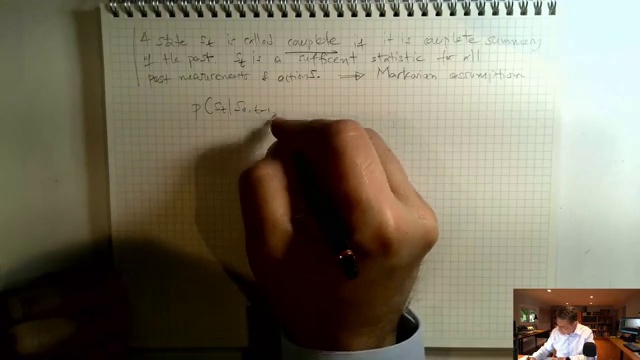 A state st is called complete if it is complete summary
if the past st is a sufficent statistic for all
past measurements & actions. ⟹ Markovian assumption
p(st|s0:t-1,